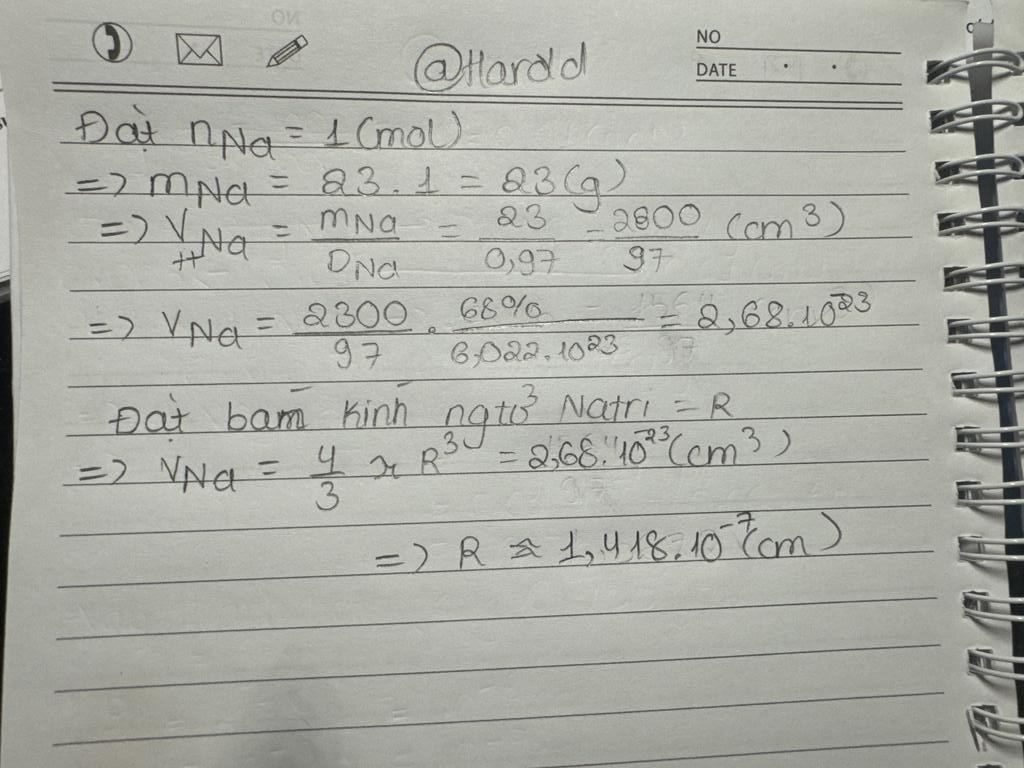 @Hardd
NO
DATE
Đặt nNa = 1 (mol)
=> mNa = 23 . 1 = 23 (g)
=> VttNa = mNa / DNa = 23 / 0,97 = 2300 / 97 (cm³)
=> VNa = 2300 / 97 . 68% / 6,022.10²³ = 2,68.10⁻²³
Đặt bán kính ngtử Natri = R
=> VNa = 4/3 π R³ = 2,68.10⁻²³ (cm³)
=> R ≈ 1,418.10⁻⁷ (cm)